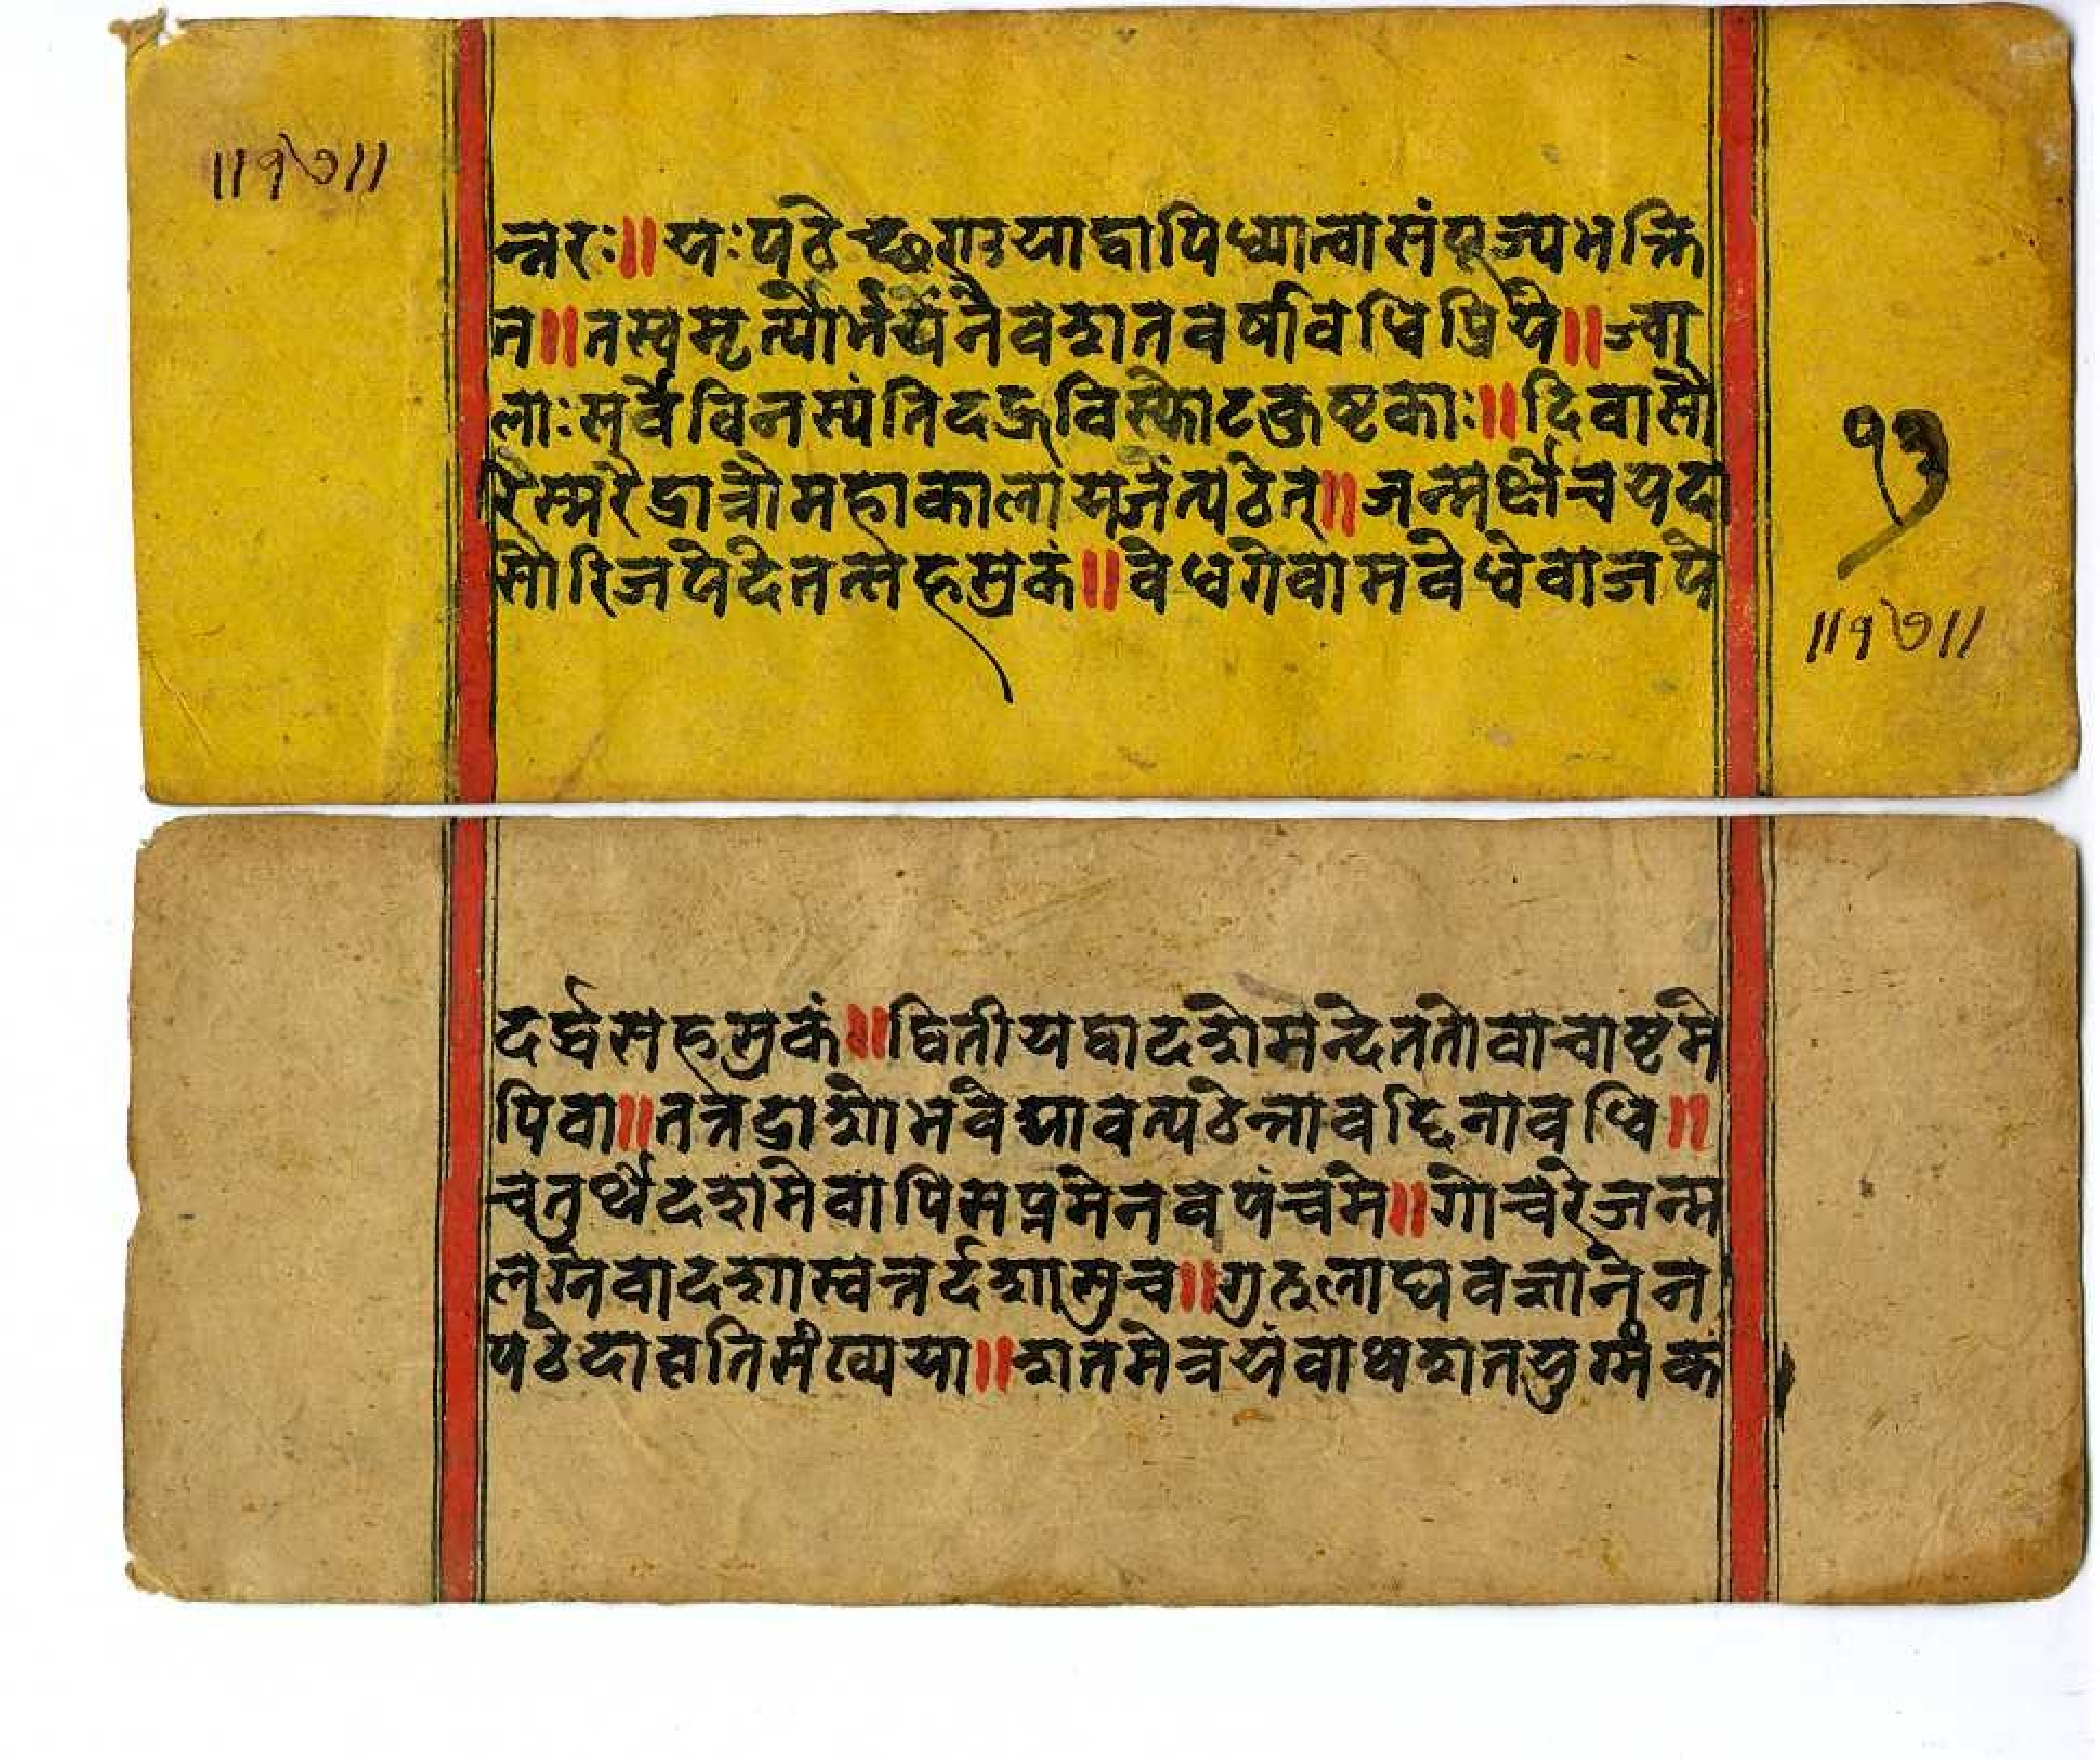 ॥१७॥
न्नरः॥यःपठेच्छृणुयाद्वापिध्यात्वासंपूज्यभक्ति
त॥तस्यमृत्योर्भयंनैवशतवर्षावधिप्रिये॥ज्वा
लाःसर्वेविनस्यंतिदद्रूविस्फोटकुष्टकाः॥दिवासौ
रिस्मरेद्रात्रौमहाकालांमजंत्पठेत्॥जन्मर्क्षौचयदा
सौरिजपेदेतत्सहस्रकं॥वेधगेवामवेधेवाजपे
१७
॥१७॥
दर्द्धसहस्रकं॥द्वितीयद्वादशेमन्देततोवाचाष्टमे
पिवा॥तत्रद्राशौभवेद्यावत्पठेत्तावद्दिनावधि॥
चतुर्थेदशमेवापिसप्तमेनवपंचमे॥गोचरेजन्म
लग्नेवादशास्वन्तर्दशासुच॥गुरुलाघवज्ञानेन
पठेदावृत्तिसंख्यया॥शतमेत्रयंवाथशतयुग्मंक